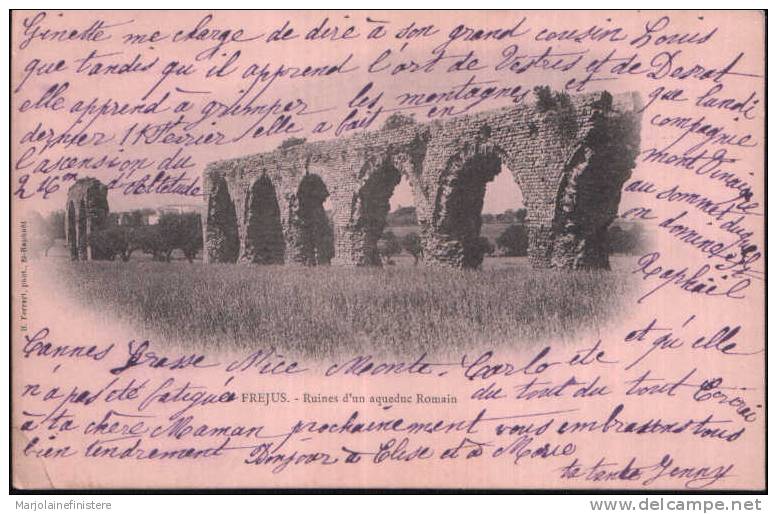 Ginette me charge de dire à son grand cousin Louis
que tandis qu'il apprend l'art de Vestris et de
elle apprend à grimper les montagnes et que lundi
dernier 1r Février elle a fait en compagnie
l'ascension du mont Vinaigre
m d'altitude au sommet duquel
on domine St
Raphaël
Cannes Grasse Nice Monte-Carlo etc et qu'elle
n'a pas été fatiguée du tout du tout
à ta chère Maman prochainement vous embrassons tous
bien tendrement Bonjour à Elise et à Marie
ta tante Jenny
FREJUS. - Ruines d'un aqueduc Romain
H. Ferrari, phot., St-Raphaël
Marjolainefinistere
www.delcampe.net